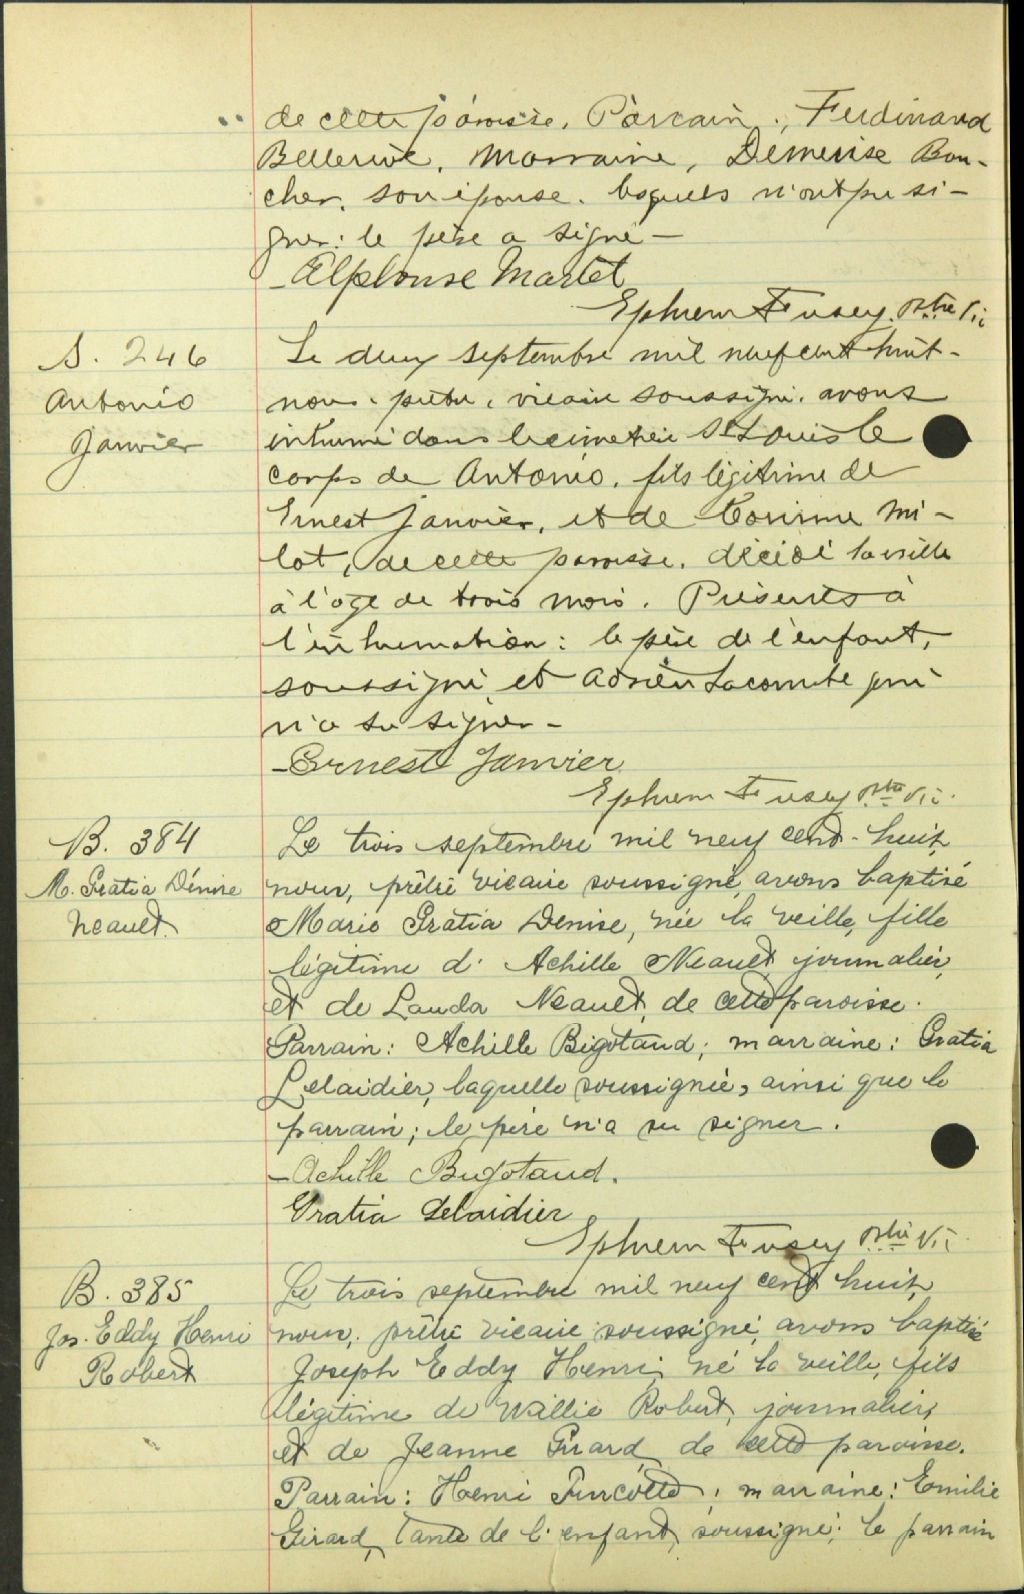 de cette paroisse. Parrain., Ferdinand
Bellerive, Marraine, Demerise Bou-
cher, son épouse. lesquels n'ont pu si-
gner: le père a signé —
Alphonse Martel
Ephrem Fusey. Ptre Vic
S. 246
Antonio
Janvier
Le deux septembre mil neuf cent huit-
nous, prêtre, vicaire soussigné, avons
inhumé dans le cimetière St Louis le
corps de Antonio, fils légitime de
Ernest Janvier, et de Corinne Mi-
lot, de cette paroisse. décédé la veille
à l'âge de trois mois. Présents à
l'inhumation: le père de l'enfant,
soussigné et Adrien Lacombe qui
n'a su signer -
Ernest Janvier
Ephrem Fusey Ptre Vic.
B. 384
M. Gratia Dénise
Neault
Le trois septembre mil neuf cent-huit,
nous, prêtre vicaire soussigné, avons baptisé
Marie Gratia Denise, née la veille, fille
légitime d' Achille Neault, journalier,
et de Lauda Neault, de cette paroisse.
Parrain: Achille Bigotaud; marraine: Gratia
Lelaidier, laquelle soussignée, ainsi que le
parrain; le père n'a su signer.
Achille Bugotaud.
Gratia Lelaidier
Ephrem Fusey Ptre Vic
B. 385
Jos. Eddy Henri
Robert
Le trois septembre mil neuf cent huit,
nous, prêtre vicaire soussigné, avons baptisé
Joseph Eddy Henri, né la veille, fils
légitime de Willie Robert, journalier,
et de Jeanne Girard, de cette paroisse.
Parrain: Henri Turcotte; marraine: Emilie
Girard, tante de l'enfant, soussigné; le parrain